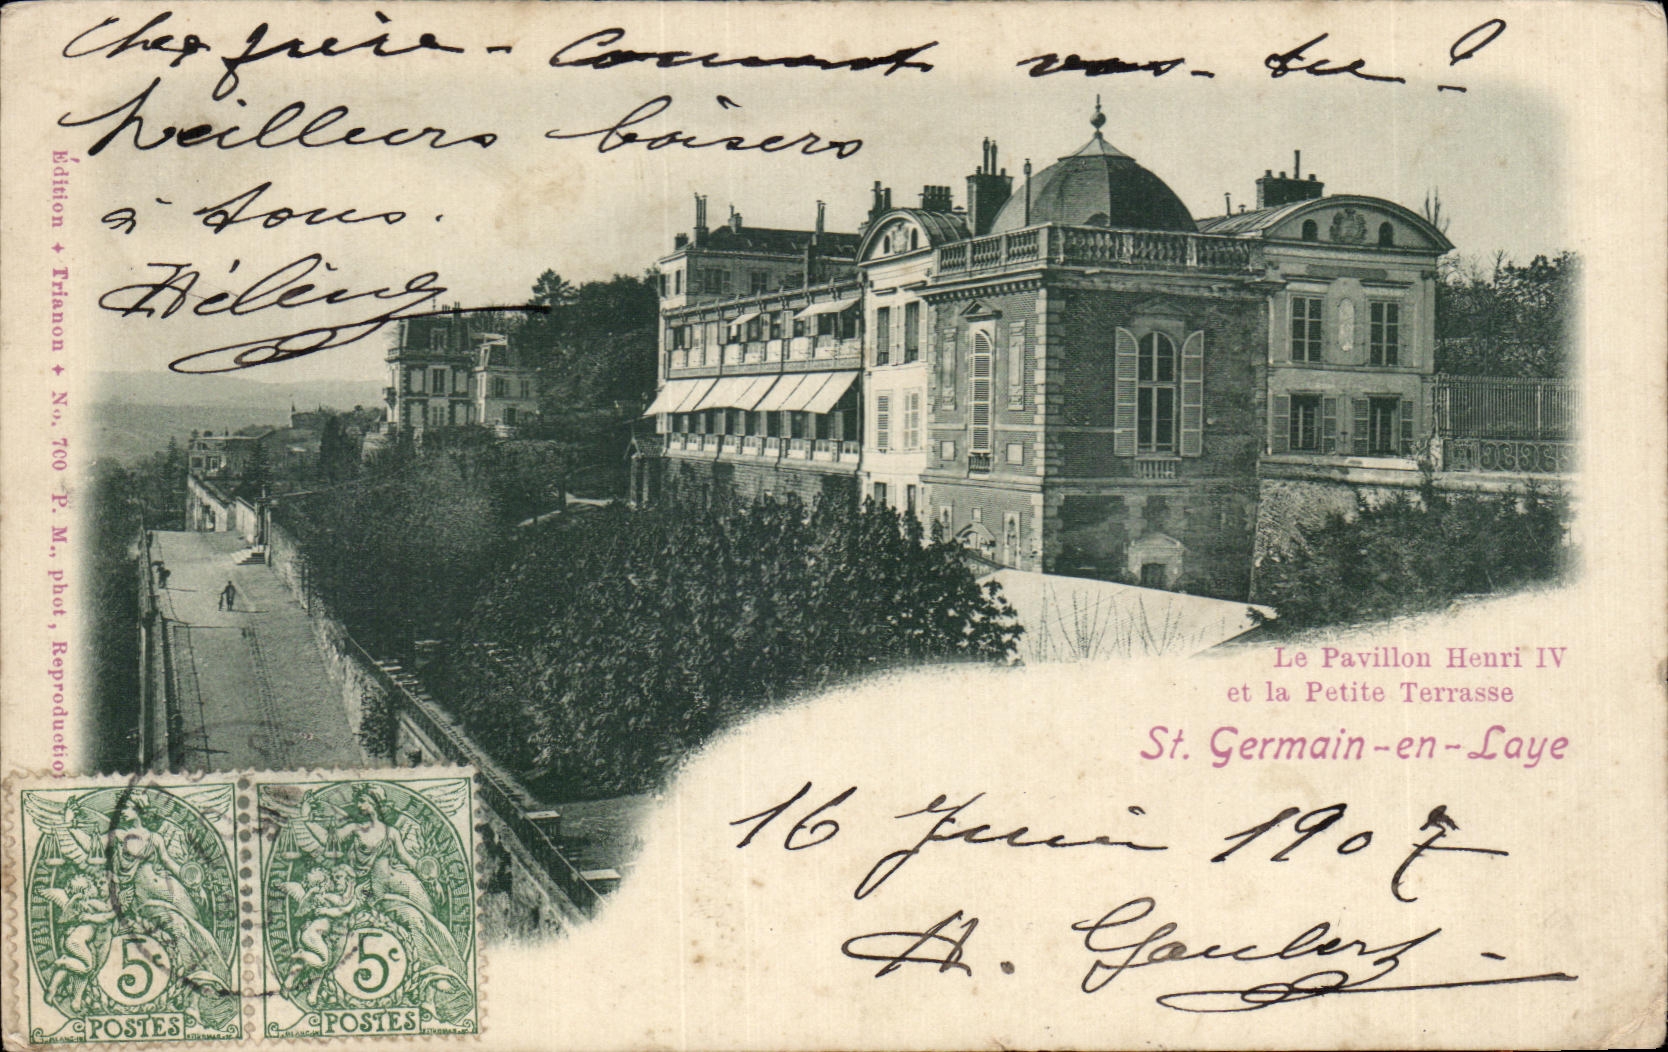 Cher frère - Comment vas-tu ?
Meilleurs baisers
à tous.
Hélène
Édition ✦ Trianon ✦ No. 700 P. M., phot, Reproductio
Le Pavillon Henri IV
et la Petite Terrasse
St. Germain-en-Laye
16 Juin 1907
H. Goubert
RÉPUBLIQUE FRANÇAISE
5c
POSTES
RÉPUBLIQUE FRANÇAISE
5c
POSTES